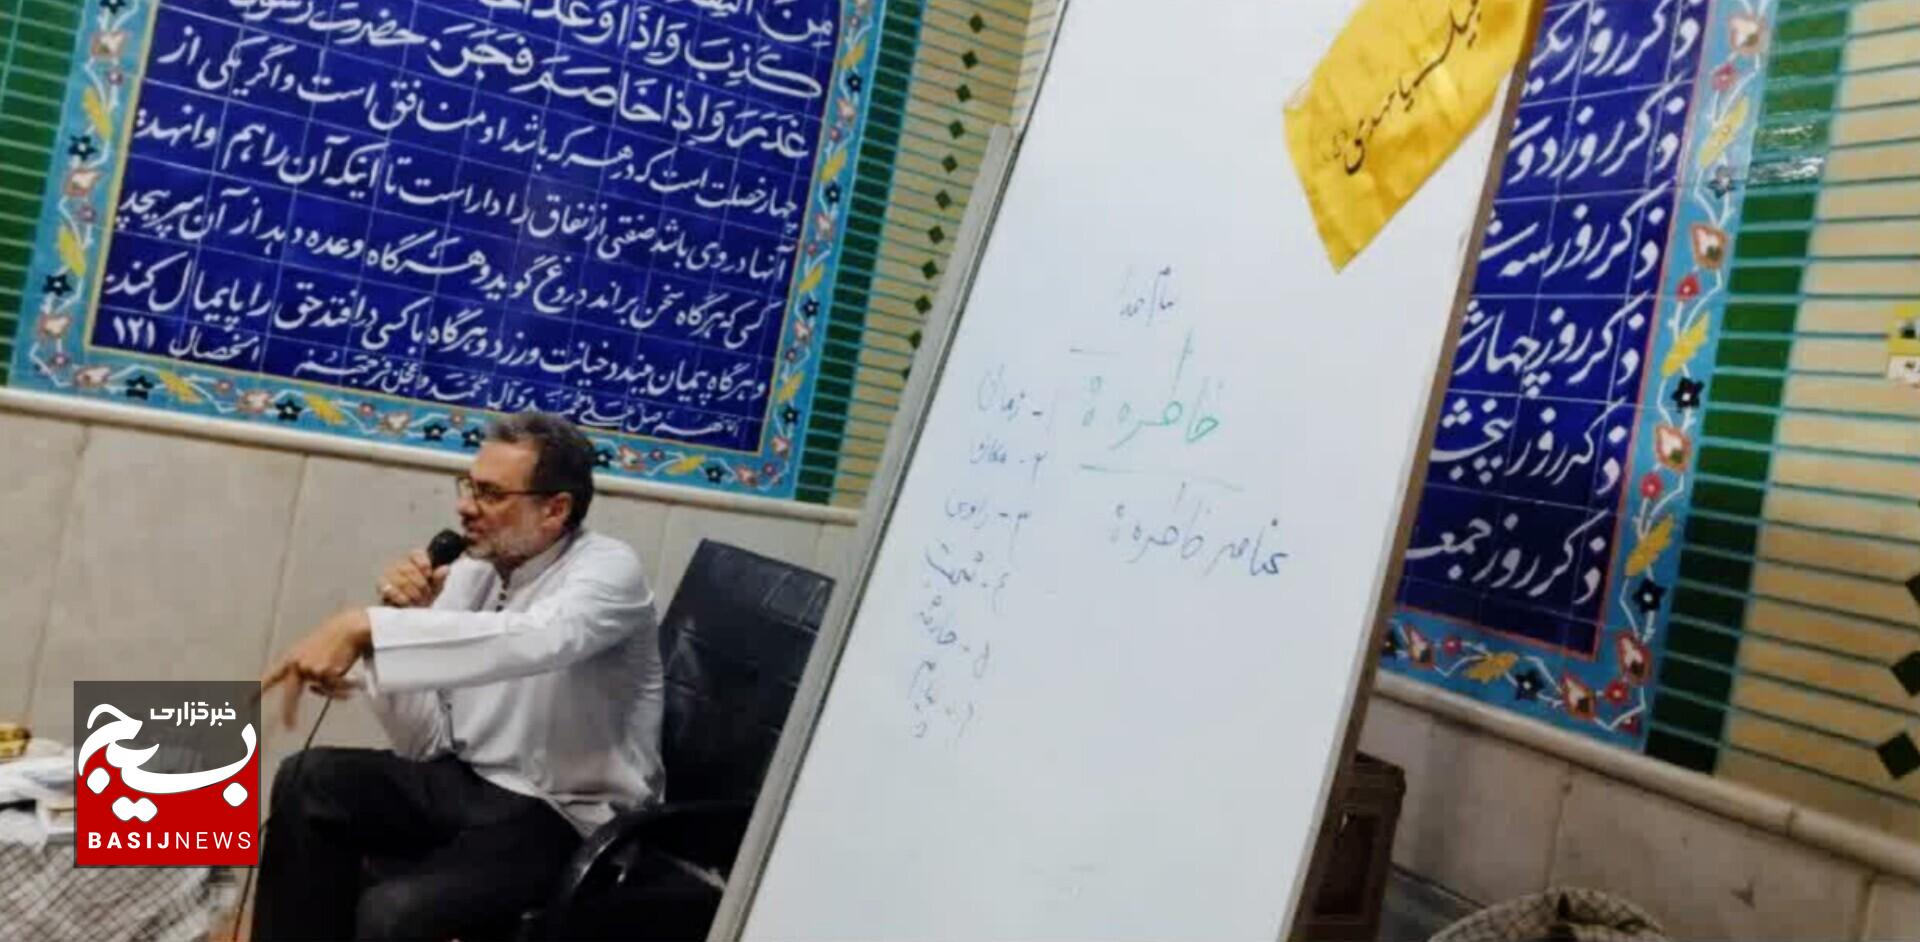 مِنَ
كَذِبَ وَاِذَا وَعَدَ
غَدَرَ وَاِذَا خَاصَمَ فَجَرَ. حضرت رسول
چهار خصلت است که در هر که باشد او منافق است و اگر یکی از
آنها در وی باشد صفتی از نفاق را داراست تا اینکه آن را هم وانهد:
کسی که هرگاه سخن براند دروغ گوید و هرگاه وعده دهد از آن سرپیچد
و هرگاه پیمان ببندد خیانت ورزد و هرگاه با کسی درافتد حق را پایمال کند.
الخصال ۱۲۱
اللهم صل علی محمد و آل محمد و عجل فرجهم
یا مهدی
بنام خدا
خاطره ؟
عناصر خاطره ؟
۱- زمان
۲- مکان
۳- راوی
۴- شخصیت
۵- حادثه
ذکر روز یک
ذکر روز دوش
ذکر روز سه ش
ذکر روز چهارش
ذکر روز پنجش
ذکر روز جمعه
خبرگزاری
بسیج
BASIJNEWS